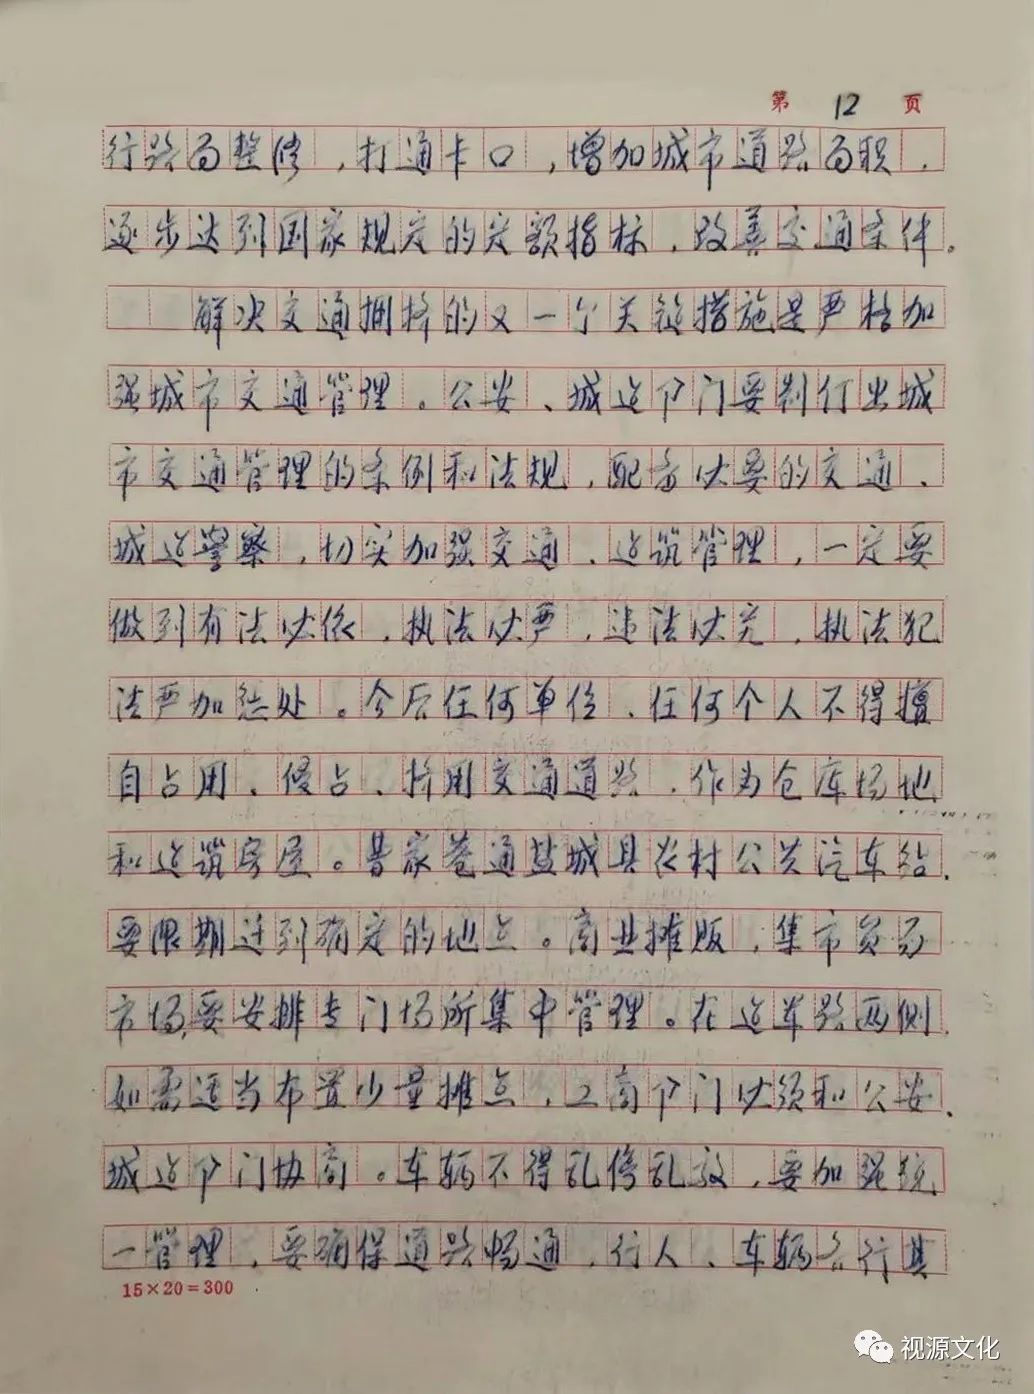 第 12 页
行路面整修，打通卡口，增加城市道路面积，
逐步达到国家规定的定额指标，改善交通条件。
解决交通拥挤的又一个关键措施是严格加
强城市交通管理。公安、城建部门要制订出城
市交通管理的条例和法规，配备必要的交通、
城建警察，切实加强交通、建筑管理，一定要
做到有法必依，执法必严，违法必究，执法犯
法严加惩处。今后任何单位、任何个人不得擅
自占用、侵占、挤用交通道路，作为仓库场地
和建筑房屋。曹家巷通盐城县农村公共汽车站，
要限期迁到确定的地点。商业摊贩，集市贸易
市场，要安排专门场所集中管理。在这车路两侧，
如需适当布置少量摊点，工商部门必须和公安、
城建部门协商。车辆不得乱停乱放，要加强统
一管理，要确保道路畅通，行人、车辆各行其
15×20=300
视源文化